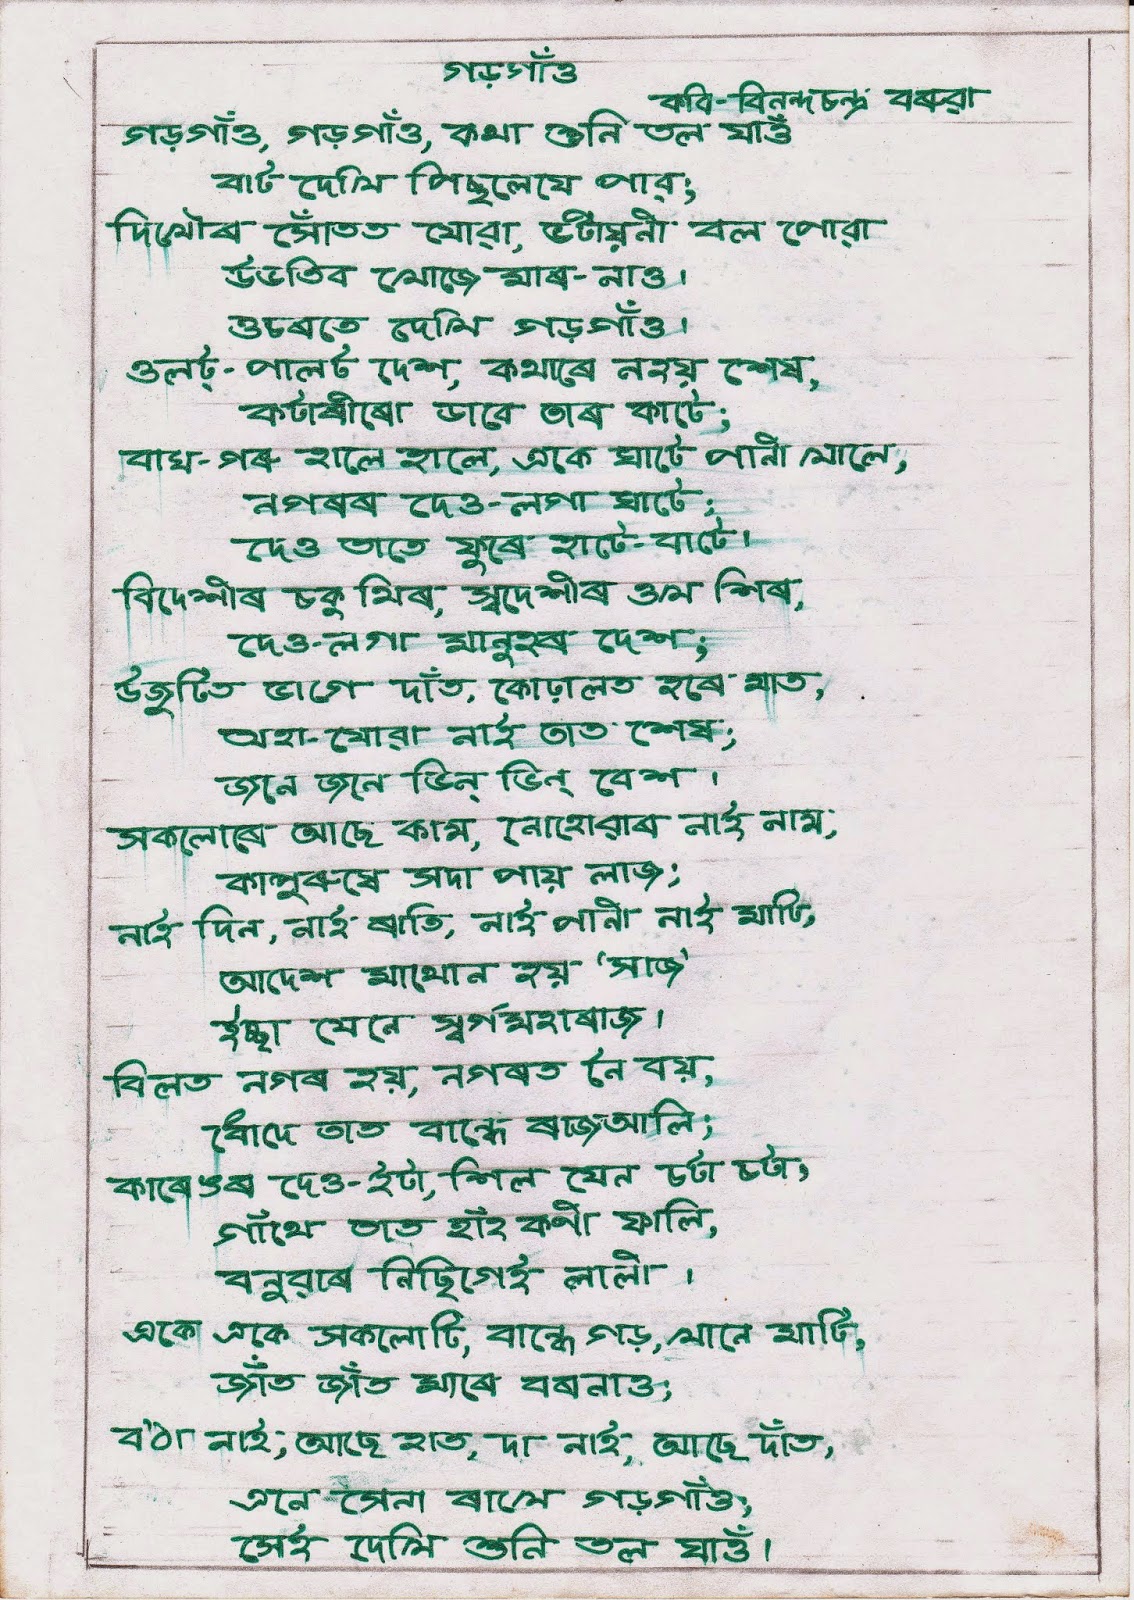 গড়গাঁও
কবি-বিনন্দচন্দ্ৰ বৰুৱা
গড়গাঁও, গড়গাঁও, কথা শুনি তল যাওঁ
বাট দেখি পিছলেযে পাৱ;
দিখৌৰ সোঁতত যোৱা, ভটীয়নী বল পোৱা
উভতিব খোজে মাৰ-নাও।
ওচৰতে দেখি গড়গাঁও।
ওলট্-পালট দেশ, কথাৰে নহয় শেষ,
কটাৰীৰো ডাবে তাৰ কাটে;
বাঘ-গৰু হালে হালে, একে ঘাটে পানী খালে,
নগৰৰ দেও-লগা ঘাটে;
দেও তাতে ফুৰে হাটে-বাটে।
বিদেশীৰ চকু থিৰ, স্বদেশীৰ ওখ শিৰ,
দেও-লগা মানুহৰ দেশ;
উজুটিত ভাগে দাঁত, কোঢ়ালত হৰে মাত,
অহা-যোৱা নাই তাত শেষ;
জনে জনে ভিন্ ভিন্ বেশ।
সকলোৰে আছে কাম, নোহোৱাৰ নাই নাম;
কাপুৰুষে সদা পায় লাজ;
নাই দিন, নাই ৰাতি, নাই পানী নাই মাটি,
আদেশ মাথোন হয় 'সাজ'
ইচ্ছা যেনে স্বৰ্গমহাৰাজ।
বিলত নগৰ হয়, নগৰত নৈ বয়,
বোদে তাত বান্ধে ৰাজআলি;
কাৰেঙৰ দেও-ইটা, শিল যেন চটা চটা,
গাঁথে তাত হাঁহ কণী ফালি,
বনুৱৰে নিছিগেই লালী।
একে একে সকলোটি, বান্ধে গড়, খানে মাটি,
জাঁত জাঁত মাৰে বৰনাও;
ব'ঠা নাই, আছে হাত, দা নাই, আছে দাঁত,
এনে সেনা ৰাখে গড়গাঁও;
সেই দেখি শুনি তল যাওঁ।